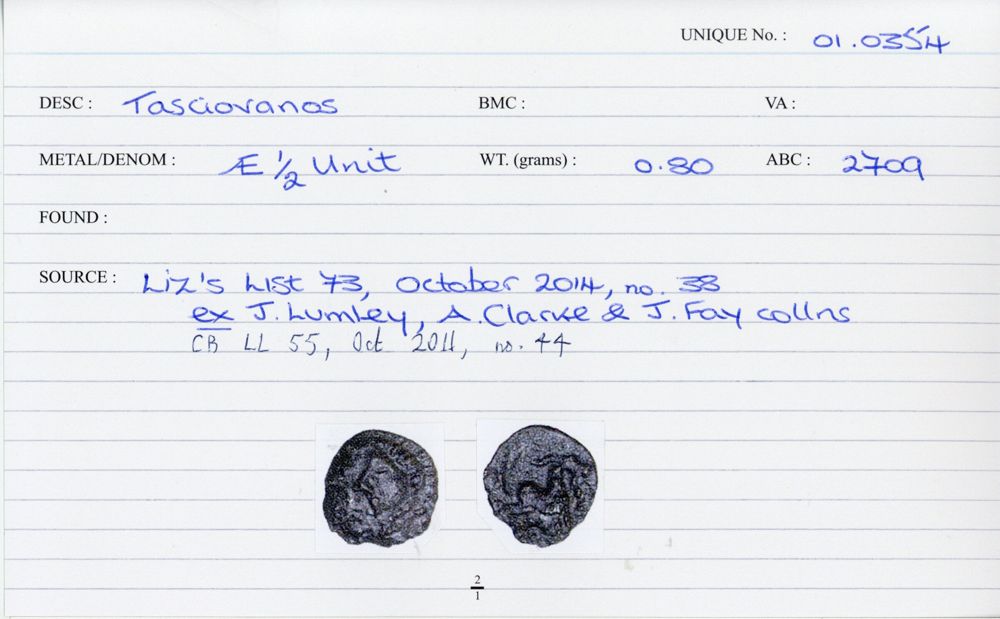 UNIQUE No. : 01.0354
DESC : Tasciovanos BMC : VA :
METAL/DENOM : Æ 1/2 Unit WT. (grams) : 0.80 ABC : 2709
FOUND :
SOURCE : Liz's List 73, October 2014, no. 38
ex J. Lumley, A. Clarke & J. Fay collns
CB LL 55, Oct 2011, no. 44
2
1